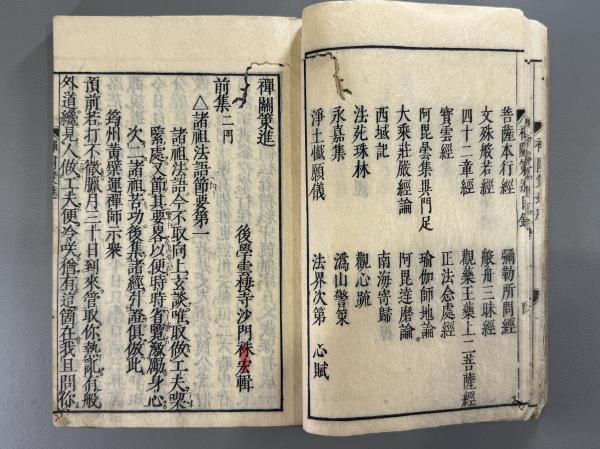 菩薩本行經
彌勒所問經
文殊般若經
般舟三昧經
四十二章經
觀藥王藥上二菩薩經
寶雲經
正法念處經
阿毘曇集異門足
瑜伽師地論
大乘莊嚴經論
阿毘達磨論
西域記
南海寄歸
法苑珠林
觀心疏
永嘉集
溈山警策
淨土懺願儀
法界次第
心賦
禪關策進
前集二門
後學雲棲寺沙門袾宏輯
△諸祖法語節要第一
諸祖法語今不取向上玄談唯取做工夫喫
緊處又節其要畧以便時時省覽激勵身心
次二諸祖苦功後集諸經引證俱倣此
筠州黃檗運禪師示衆
預前若打不徹臘月三十日到來管取你熱亂有般
外道纔見人做工夫便冷咲猶有這箇在我且問你